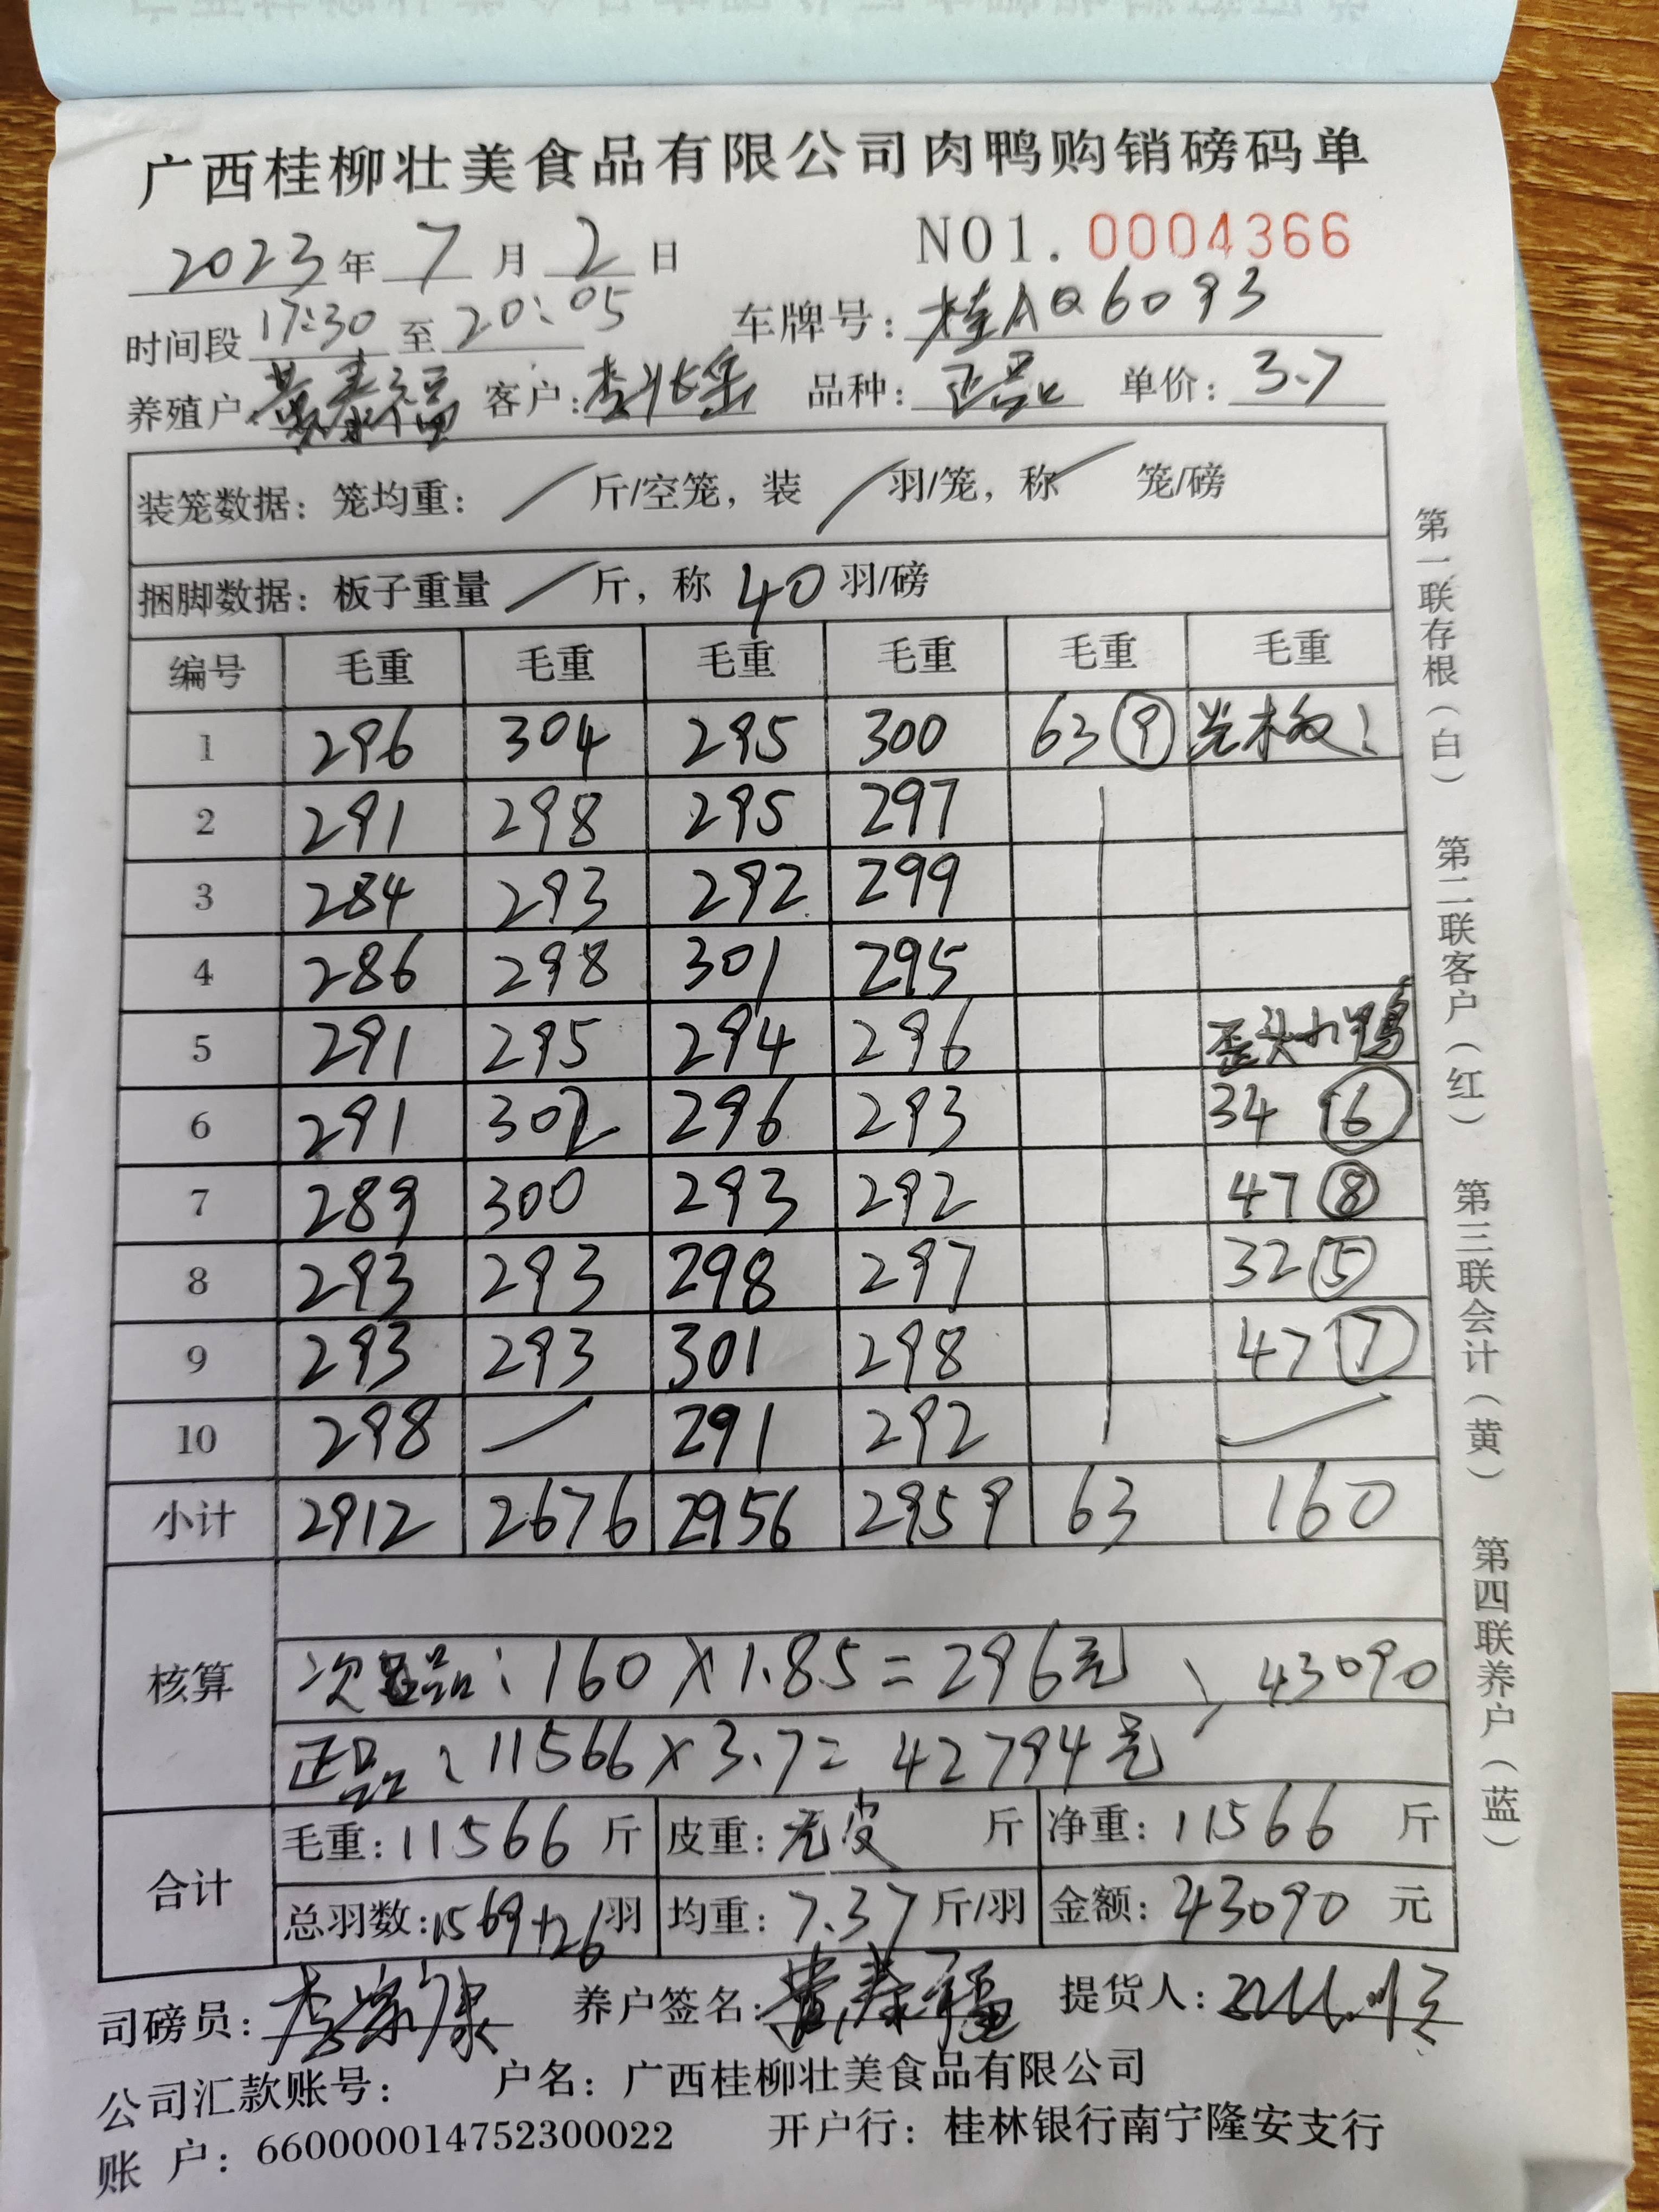 广西桂柳壮美食品有限公司肉鸭购销磅码单
2023年 7月 2日 NO1.0004366
时间段 17:30 至 20:05 车牌号: 桂AQ6093
养殖户: 黄泰福 客户: 李兆岳 品种: 正品 单价: 3.7
装笼数据: 笼均重: / 斤/空笼, 装 / 羽/笼, 称 / 笼/磅
捆脚数据: 板子重量 / 斤, 称 40 羽/磅
编号 毛重 毛重 毛重 毛重 毛重 毛重
1 296 304 295 300 63 ⑨ 光板:
2 291 298 295 297
3 284 293 292 299
4 286 298 301 295
5 291 295 294 296 歪头小鸭
6 291 302 296 293 34 ⑥
7 289 300 293 292 47 ⑧
8 293 293 298 297 32 ⑤
9 293 293 301 298 47 ⑦
10 298 / 291 292 /
小计 2912 2676 2956 2959 63 160
核算
次品: 160×1.85=296元 43090
正品: 11566×3.7=42794元
合计
毛重: 11566 斤 皮重: 无皮 斤 净重: 11566 斤
总羽数: 1569+26 羽 均重: 7.37 斤/羽 金额: 43090 元
司磅员: 养户签名: 黄泰福 提货人:
公司汇款账号: 户名: 广西桂柳壮美食品有限公司
账 户: 660000014752300022 开户行: 桂林银行南宁隆安支行
第一联存根(白) 第二联客户(红) 第三联会计(黄) 第四联养户(蓝)